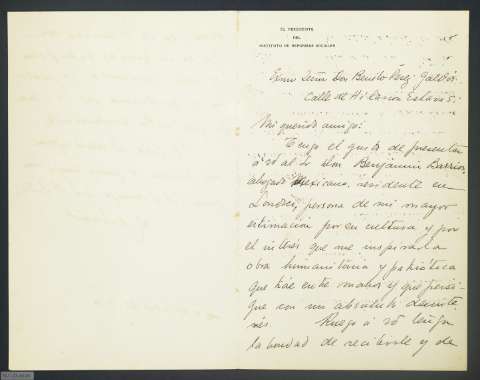 EL PRESIDENTE
DEL
INSTITUTO DE REFORMAS SOCIALES
Exmo Señor Don Benito Pérez Galdós
Calle de Hilarión Eslava 5.
Mi querido amigo:
Tengo el gusto de presentar
á vd al Sr Don Benjamín Barrios,
abogado Mexicano, residente en
Londres, persona de mi mayor
estimación por su cultura y por
el interés que me inspira la
obra humanitaria y patriótica
que trae entre manos y que persi-
gue con un absoluto desinte-
rés. Ruego á vd tenga
la bondad de recibirle y de